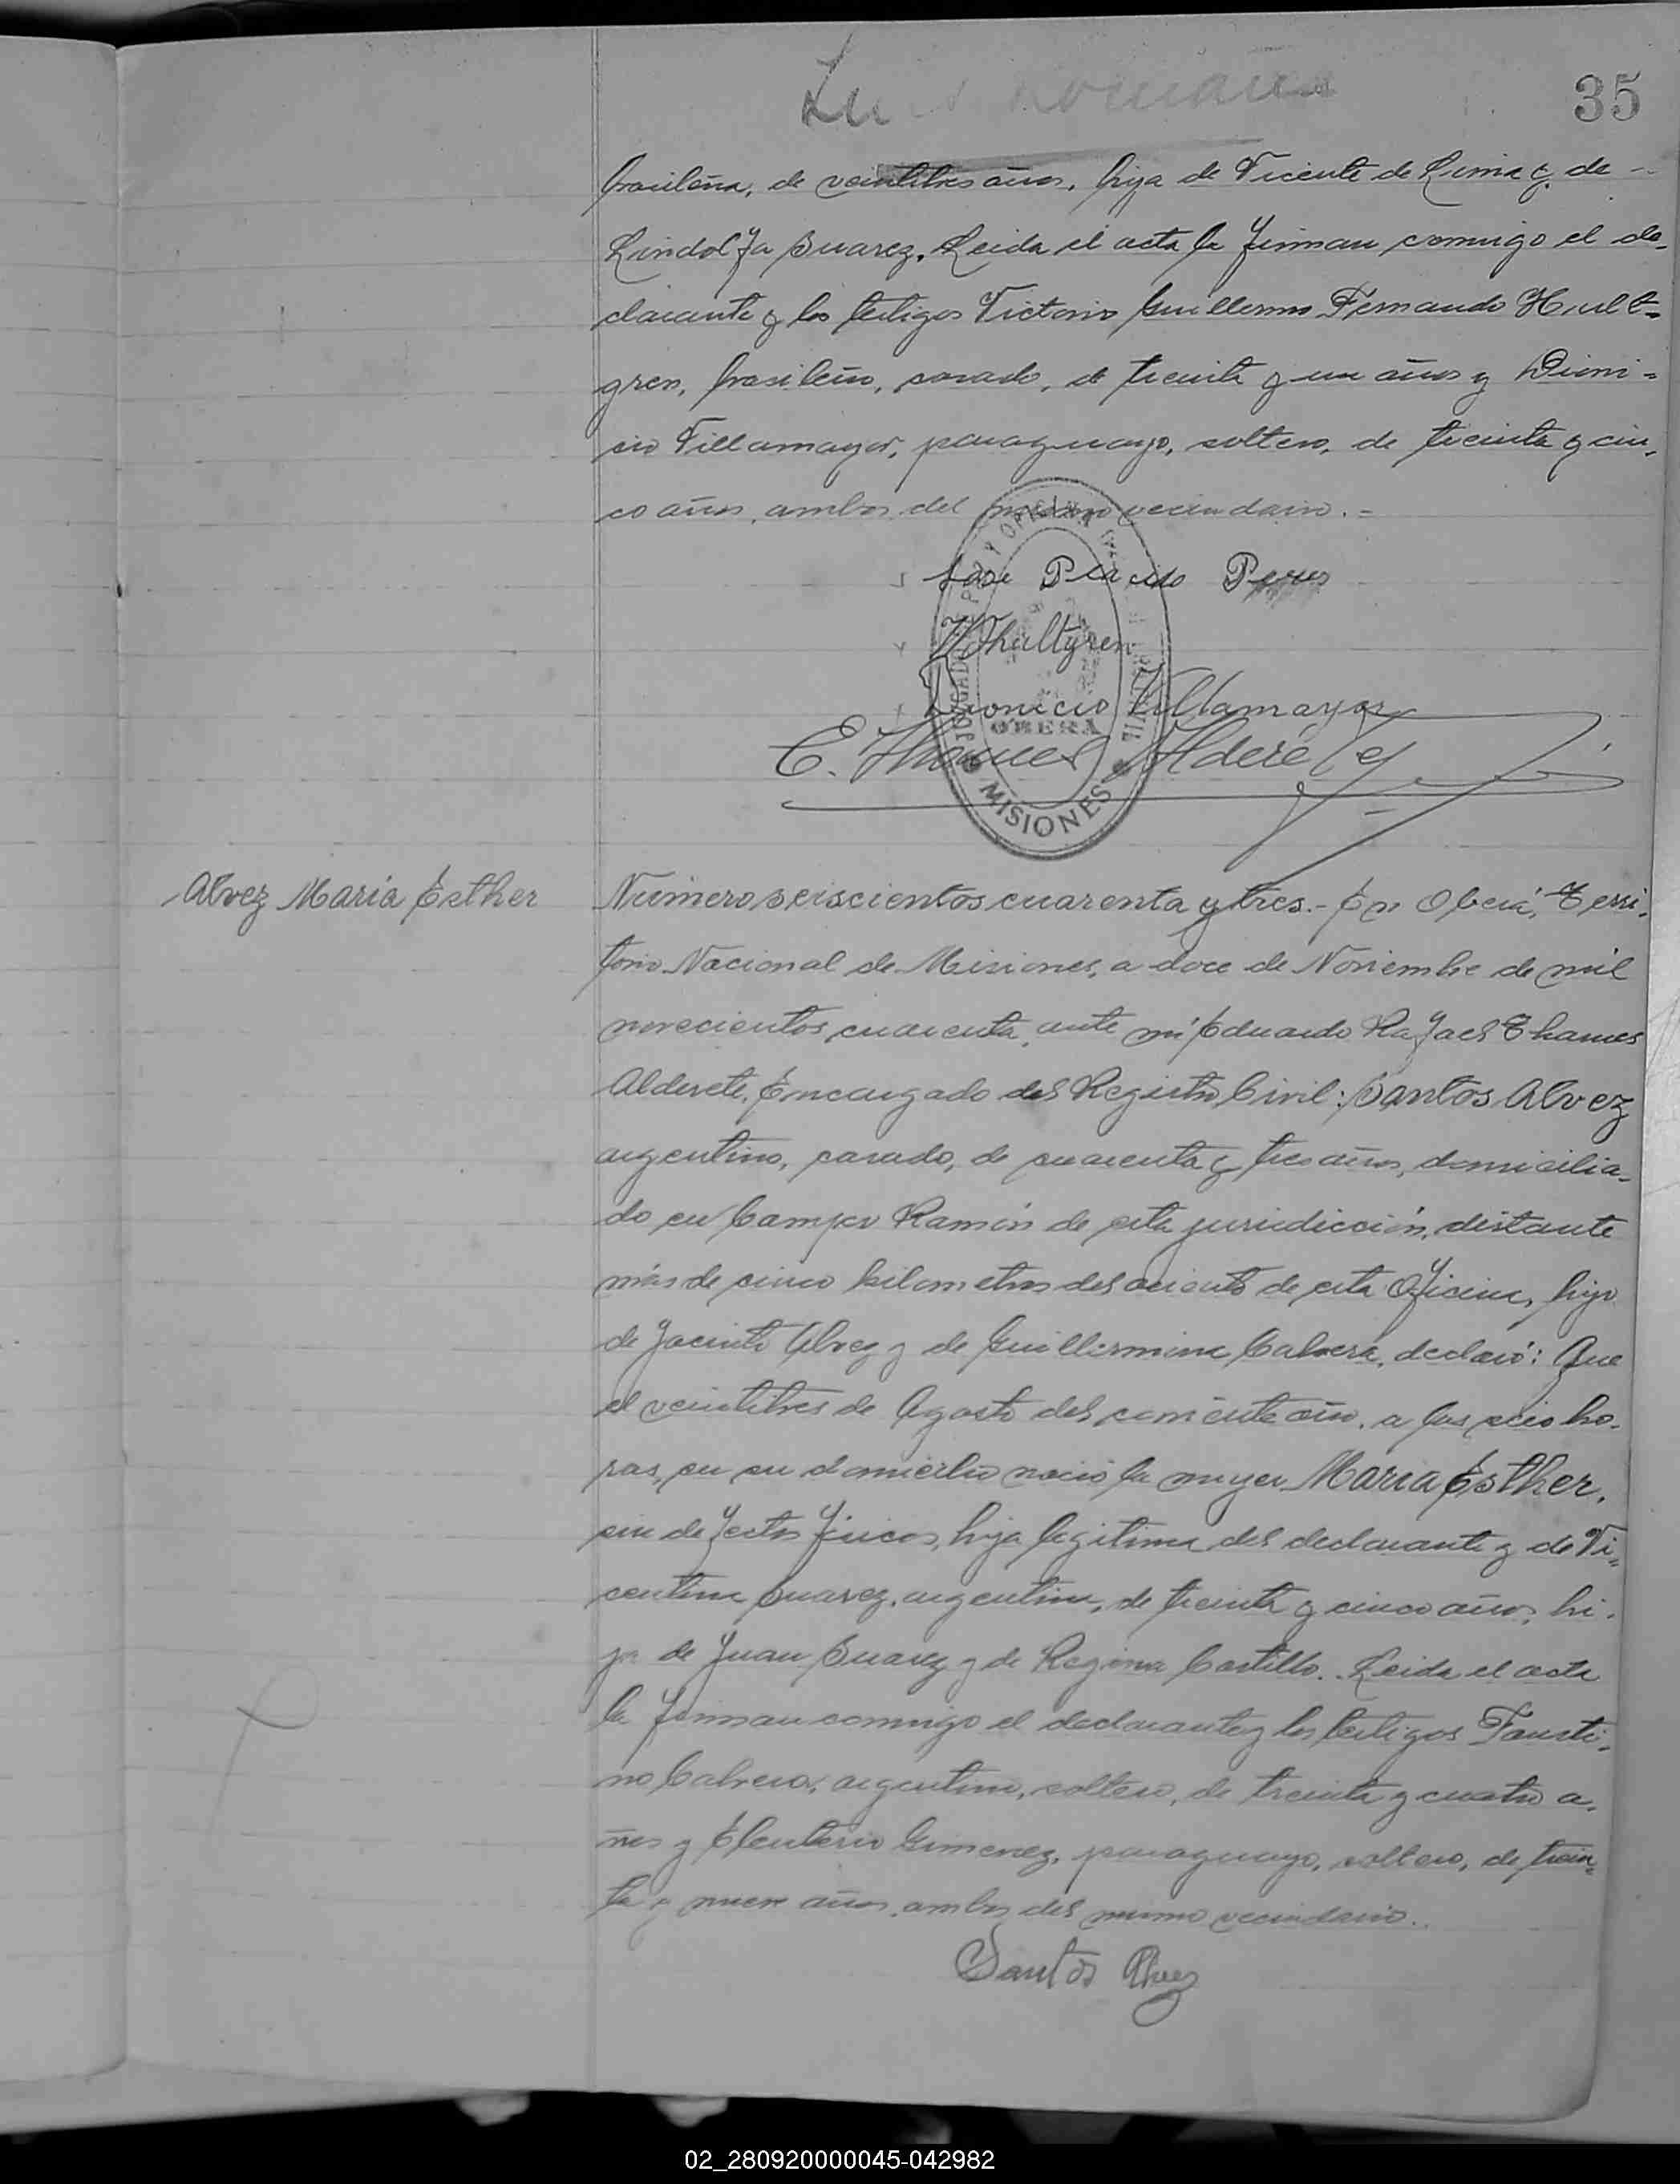 35
brasileña, de veintitres años, hija de Vicente de Lima y de -
Lindolfa Suarez. Leida el acta la firman conmigo el de-
clarante y los testigos Victorio Guillermo Fernando Hult=
gren, brasileño, casado, de treinta y un años y Dioni=
sio Villamayor, paraguayo, soltero, de treinta y cin-
co años, ambos del mismo vecindario.-
Jose Placido Peres
Hultgren
Dionicio Villamayor
E. Thames Alderete
OBERA
MISIONES
Alvez Maria Esther
Número seiscientos cuarenta y tres.- En Oberá, Terri-
torio Nacional de Misiones, a doce de Noviembre de mil
novecientos cuarenta, ante mí Eduardo Rafael Thames
Alderete, Encargado del Registro Civil: Santos Alvez
argentino, casado, de cuarenta y tres años, domicilia-
do en Campo Ramón de esta jurisdicción, distante
más de cinco kilometros del asiento de esta Oficina, hijo
de Jacinto Alvez y de Guillermina Cabrera, declaró: Que
el veintitres de Agosto del corriente año, a las seis ho-
ras, en su domicilio nació la mujer Maria Esther,
sin defectos fisicos, hija legitima del declarante y de Vi=
centina Suarez, argentina, de treinta y cinco años, hi-
ja de Juan Suarez y de Regina Castillo. Leida el acta
la firman conmigo el declarante y los testigos Fausti-
no Cabrera, argentino, soltero, de treinta y cuatro a-
ños y Eleuterio Gimenez, paraguayo, soltero, de trein=
ta y nueve años, ambos del mismo vecindario.
Santos Alvez
02_280920000045-042982